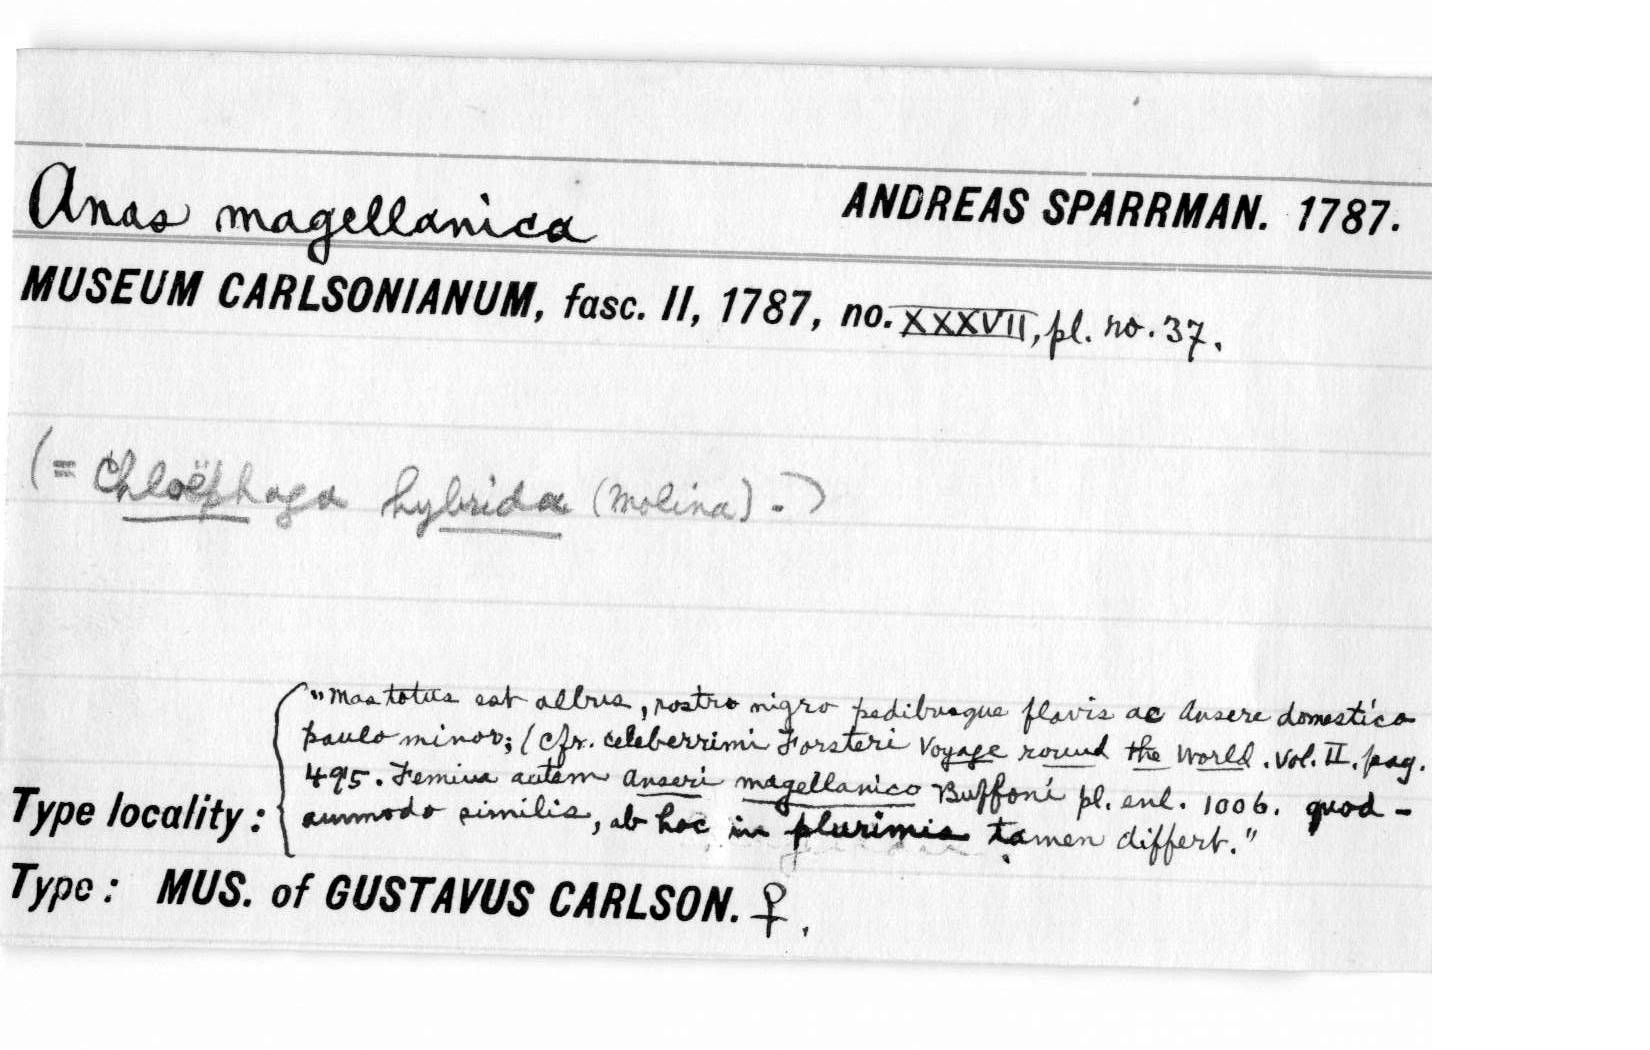 Anas magellanica ANDREAS SPARRMAN. 1787.
MUSEUM CARLSONIANUM, fasc. II, 1787, no. XXXVII, pl. no. 37.
(= Chloëphaga hybrida (Molina).)
"Mas totus est albus, rostro nigro pedibusque flavis ac Ansere domestico
paulo minor; (cfr. celeberrimi Forsteri Voyage round the World. vol. II. pag.
495. Femina autem Anseri magellanico Buffoni pl. enl. 1006. quod-
ammodo similis, ab hoc in plurimis tamen differt."
Type locality:
Type: MUS. of GUSTAVUS CARLSON. ♀.